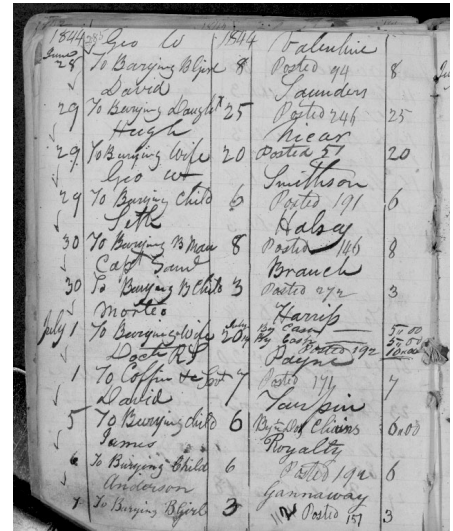 1844 Geo W 1844 Valentine
June 28 To Burying B Girl 8 Posted 94 8
David Saunders
29 To Burying Daught 25 Posted 246 25
Hugh Nicar
29 To Burying Wife 20 Posted 51 20
Geo Smithson
29 To Burying Child 6 Posted 191 6
Seth Halsey
30 To Burying B Man 8 Posted 146 8
Branch
30 To Burying B Child 3 Posted 272 3
Harris
July 1 To Burying Wife 20 By Cash 5.00
By Cash 5.00
Doct Posted 192 10.00
Payne
1 To Coffin 7 Posted 7
David Turpin
5 To Burying child 6 By 6.00
James Royalty
6 To Burying Child 6 Posted 192 6
Anderson Gannaway
7 To Burying B Girl 3 Posted 157 3